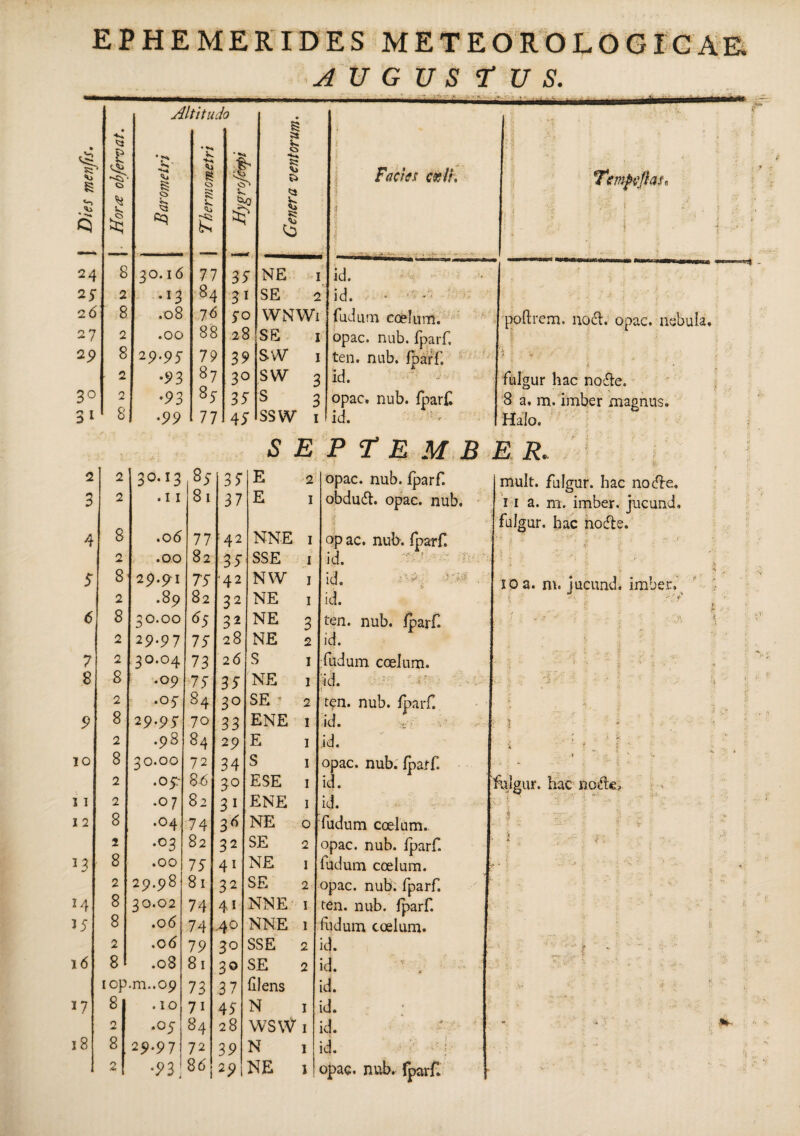 EPHEMERIDES METEOROLOGICAE.
AUGUSTUS.
Altitudo
Dies menſis. | Horæ obſervat. | Barometri | Thermometri | Hygroſcopi | Genera ventorum. | Facies cœli. | Tempeſtas.
24 8 30.16 77 35 NE 1 id.
25 2 .13 84 31 SE 2 id.
26 8 .08 76 50 WNW1 ſudum cœlum. poſtrem. noct. opac. nebula.
27 2 .00 88 28 SE 1 opac. nub. ſparſ.
29 8 29.95 79 39 SW 1 ten. nub. ſparſ.
2 .93 87 30 SW 3 id. fulgur hac nocte.
30 2 .93 85 35 S 3 opac. nub. ſparſ. 8 a. m. imber magnus.
31 8 .99 77 45 SSW 1 id. Halo.
SEPTEMBER.
2 2 30.13 85 35 E 2 opac. nub. ſparſ. mult. fulgur. hac nocte.
3 2 .11 81 37 E 1 obduct. opac. nub. 11 a. m. imber. jucund.
fulgur. hac nocte.
4 8 .06 77 42 NNE 1 opac. nub. ſparſ.
2 .00 82 35 SSE 1 id.
5 8 29.91 75 42 NW 1 id. 10 a. m. jucund. imber.
2 .89 82 32 NE 1 id.
6 8 30.00 65 32 NE 3 ten. nub. ſparſ.
2 29.97 75 28 NE 2 id.
7 2 30.04 73 26 S 1 ſudum cœlum.
8 8 .09 75 35 NE 1 id.
2 .05 84 30 SE 2 ten. nub. ſparſ.
9 8 29.95 70 33 ENE 1 id.
2 .98 84 29 E 1 id.
10 8 30.00 72 34 S 1 opac. nub. ſparſ.
2 .05 86 30 ESE 1 id. fulgur. hac nocte.
11 2 .07 82 31 ENE 1 id.
12 8 .04 74 36 NE 0 ſudum cœlum.
2 .03 82 32 SE 2 opac. nub. ſparſ.
13 8 .00 75 41 NE 1 ſudum cœlum.
2 29.98 81 32 SE 2 opac. nub. ſparſ.
14 8 30.02 74 41 NNE 1 ten. nub. ſparſ.
15 8 .06 74 40 NNE 1 ſudum cœlum.
2 .06 79 30 SSE 2 id.
16 8 .08 81 30 SE 2 id.
10p.m. .09 73 37 ſilens id.
17 8 .10 71 45 N 1 id.
2 .05 84 28 WSW 1 id.
18 8 29.97 72 39 N 1 id.
2 .93 86 29 NE 1 opac. nub. ſparſ.